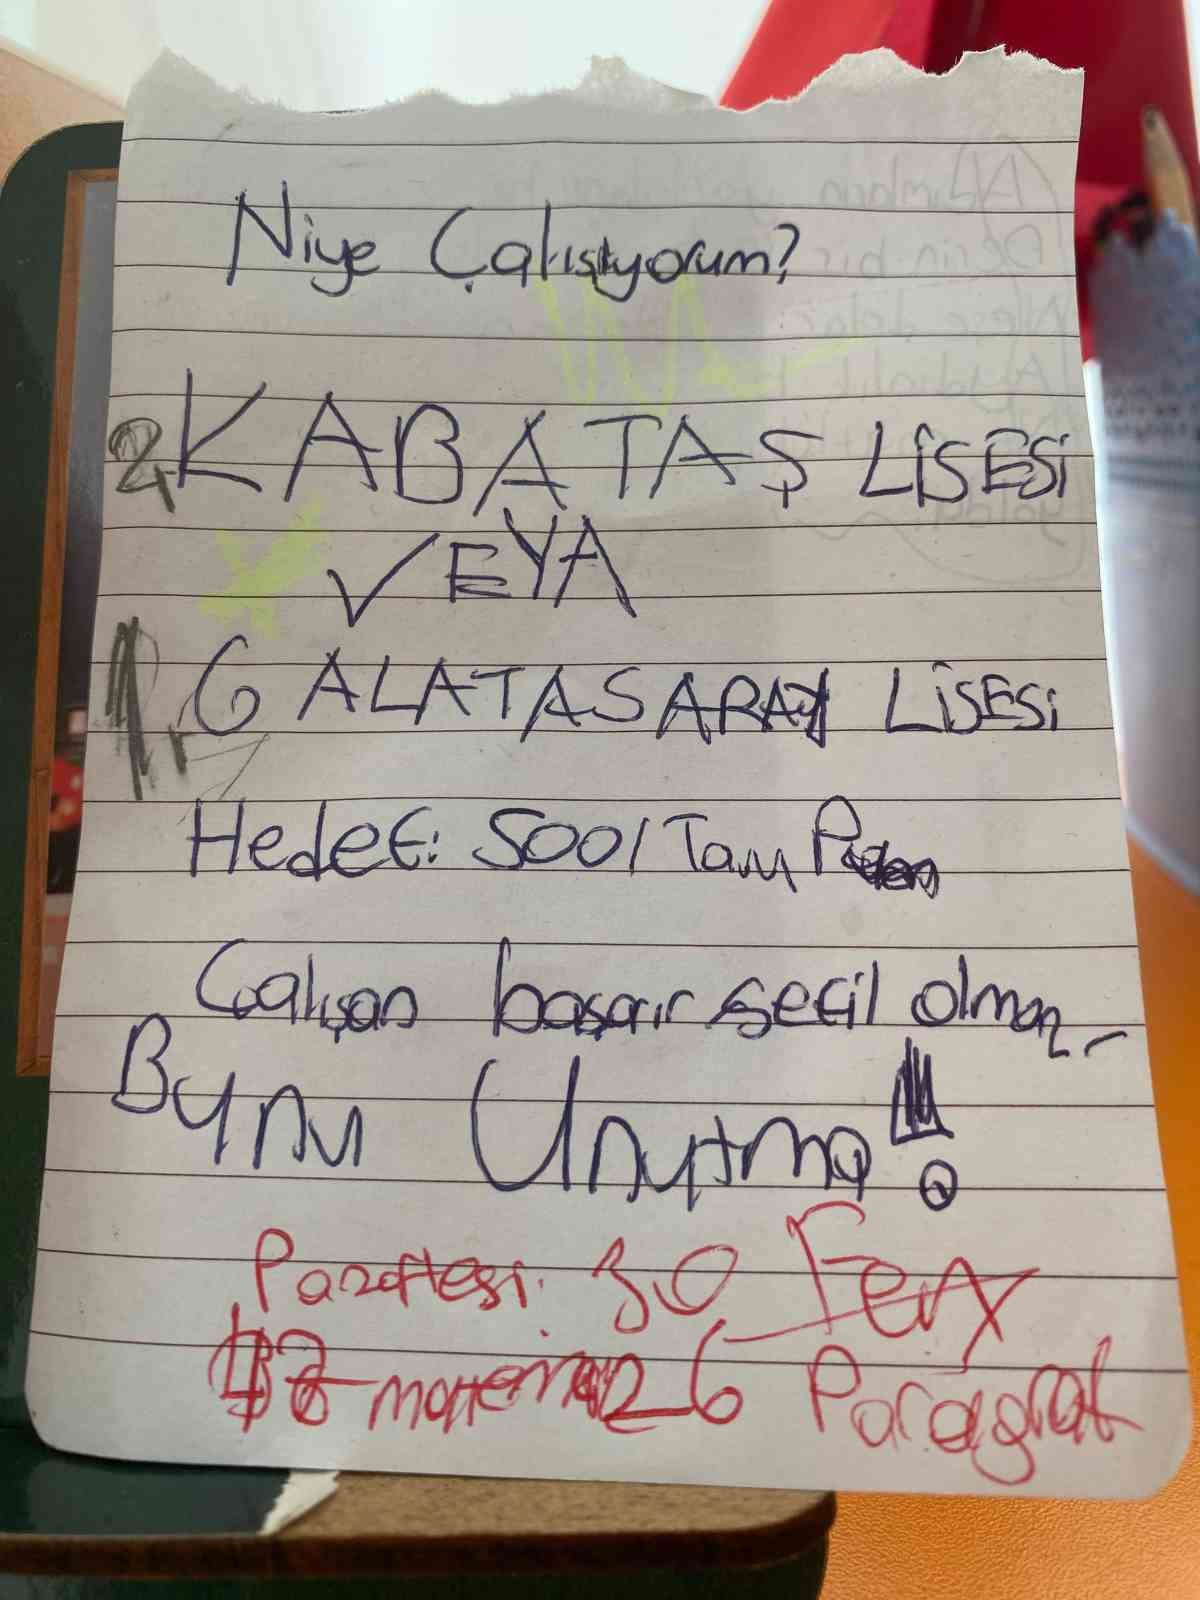 Niye Çalışıyorum?
2. KABATAŞ LİSESİ
VEYA
1. GALATASARAY LİSESİ
Hedef: 500/Tam Puan
Çalışan başarır sefil olmaz
Bunu Unutma!
Pazartesi: 30 Fen
matematik 26 Paragraf